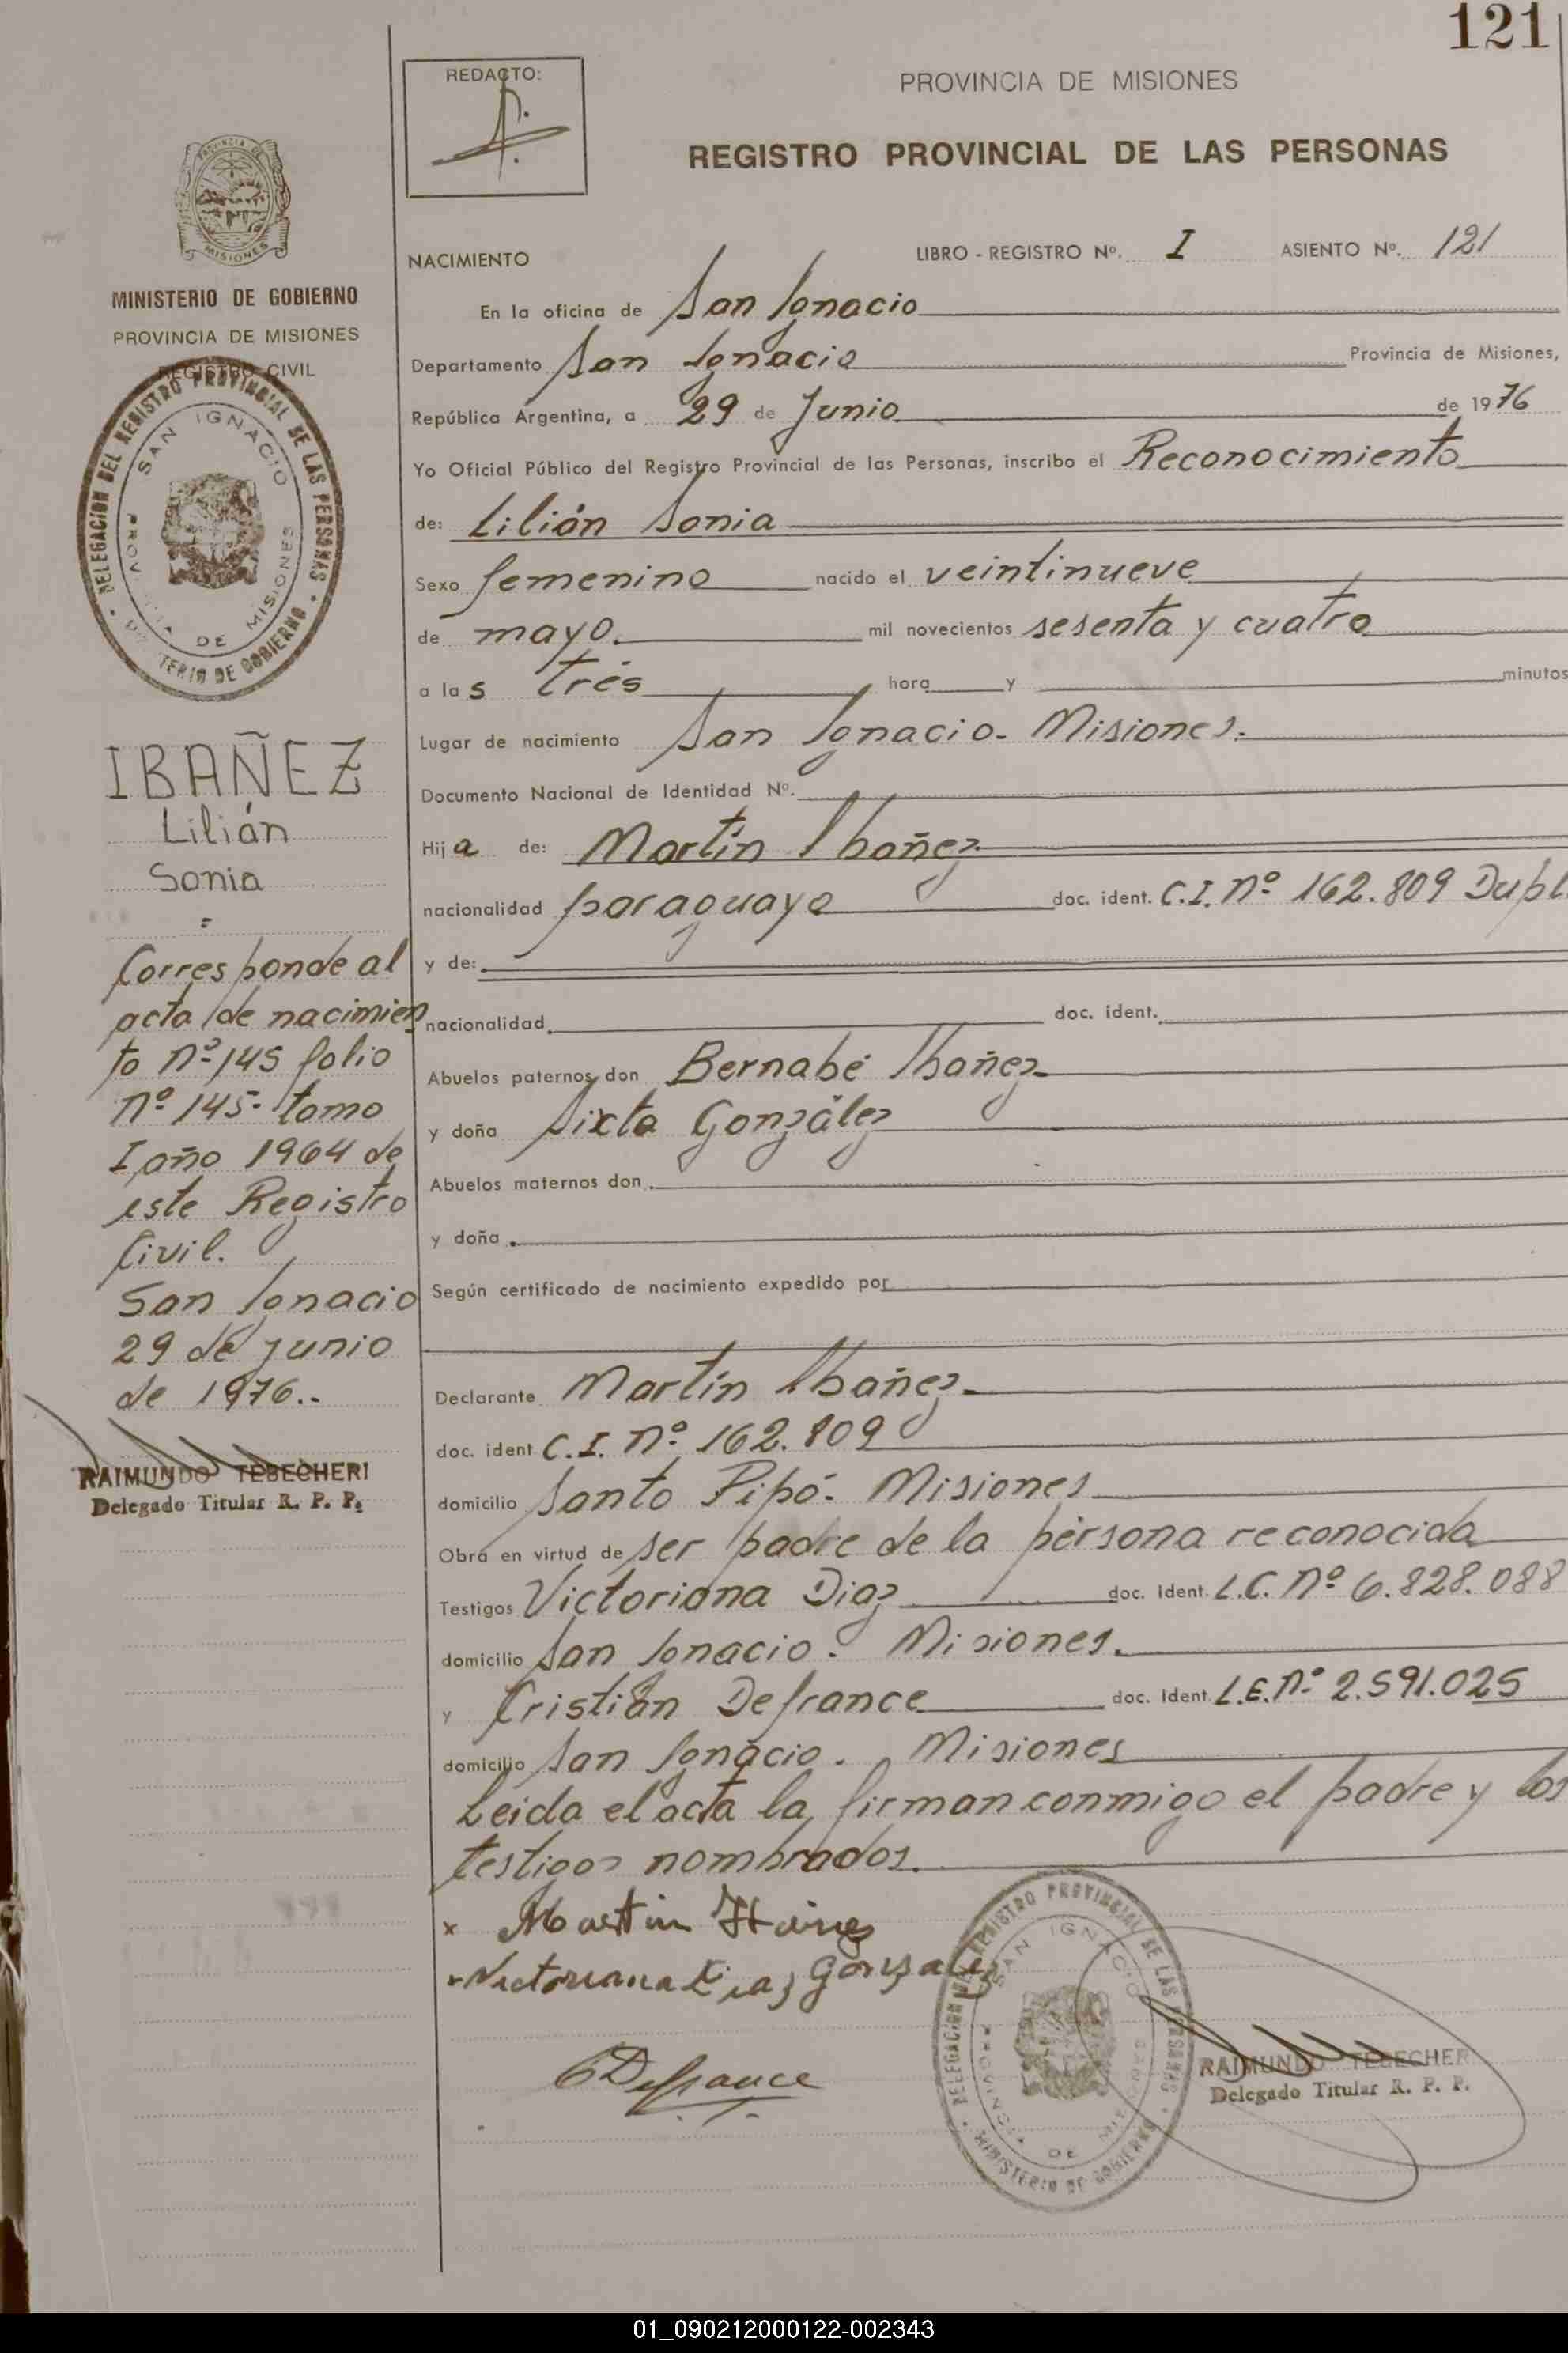 121
REDACTO:
PROVINCIA DE MISIONES
REGISTRO PROVINCIAL DE LAS PERSONAS
NACIMIENTO LIBRO - REGISTRO Nº. I ASIENTO Nº. 121
En la oficina de San Ignacio
Departamento San Ignacio Provincia de Misiones,
República Argentina, a 29 de Junio de 1976
Yo Oficial Público del Registro Provincial de las Personas, inscribo el Reconocimiento
de: Lilián Sonia
Sexo femenino nacido el veintinueve
de mayo. mil novecientos sesenta y cuatro
a las tres hora y minutos
Lugar de nacimiento San Ignacio. Misiones.
Documento Nacional de Identidad Nº.
Hija de: Martín Ibañez
nacionalidad paraguaya doc. ident. C.I. Nº 162.809 Dupl.
y de:
nacionalidad doc. ident.
Abuelos paternos don Bernabé Ibañez
y doña Sixta González
Abuelos maternos don
y doña
Según certificado de nacimiento expedido por
Declarante Martín Ibañez
doc. ident C.I. Nº 162.809
domicilio Santo Pipó. Misiones
Obra en virtud de ser padre de la persona reconocida
Testigos Victoriana Diaz doc. ident. L.C. Nº 6.828.088
domicilio San Ignacio. Misiones.
y Cristián Defrance doc. Ident. L.E. Nº 2.591.025
domicilio San Ignacio. Misiones
Leida el acta la firman conmigo el padre y los
testigos nombrados.
x Martin
Victoriana Diaz Gonzalez
CDefrance
DELEGACION DEL REGISTRO PROVINCIAL DE LAS PERSONAS
SAN IGNACIO
PROVINCIA DE MISIONES
MINISTERIO DE GOBIERNO
RAIMUNDO TEBECHERI
Delegado Titular R. P. P.
PROVINCIA DE
MISIONES
MINISTERIO DE GOBIERNO
PROVINCIA DE MISIONES
REGISTRO CIVIL
DELEGACION DEL REGISTRO PROVINCIAL DE LAS PERSONAS
SAN IGNACIO
PROVINCIA DE MISIONES
MINISTERIO DE GOBIERNO
IBAÑEZ
Lilián
Sonia
=
Corresponde al
acta de nacimien
to Nº 145 folio
Nº 145- tomo
I año 1964 de
este Registro
Civil.
San Ignacio
29 de junio
de 1976.-
RAIMUNDO TEBECHERI
Delegado Titular R. P. P.
01_090212000122-002343